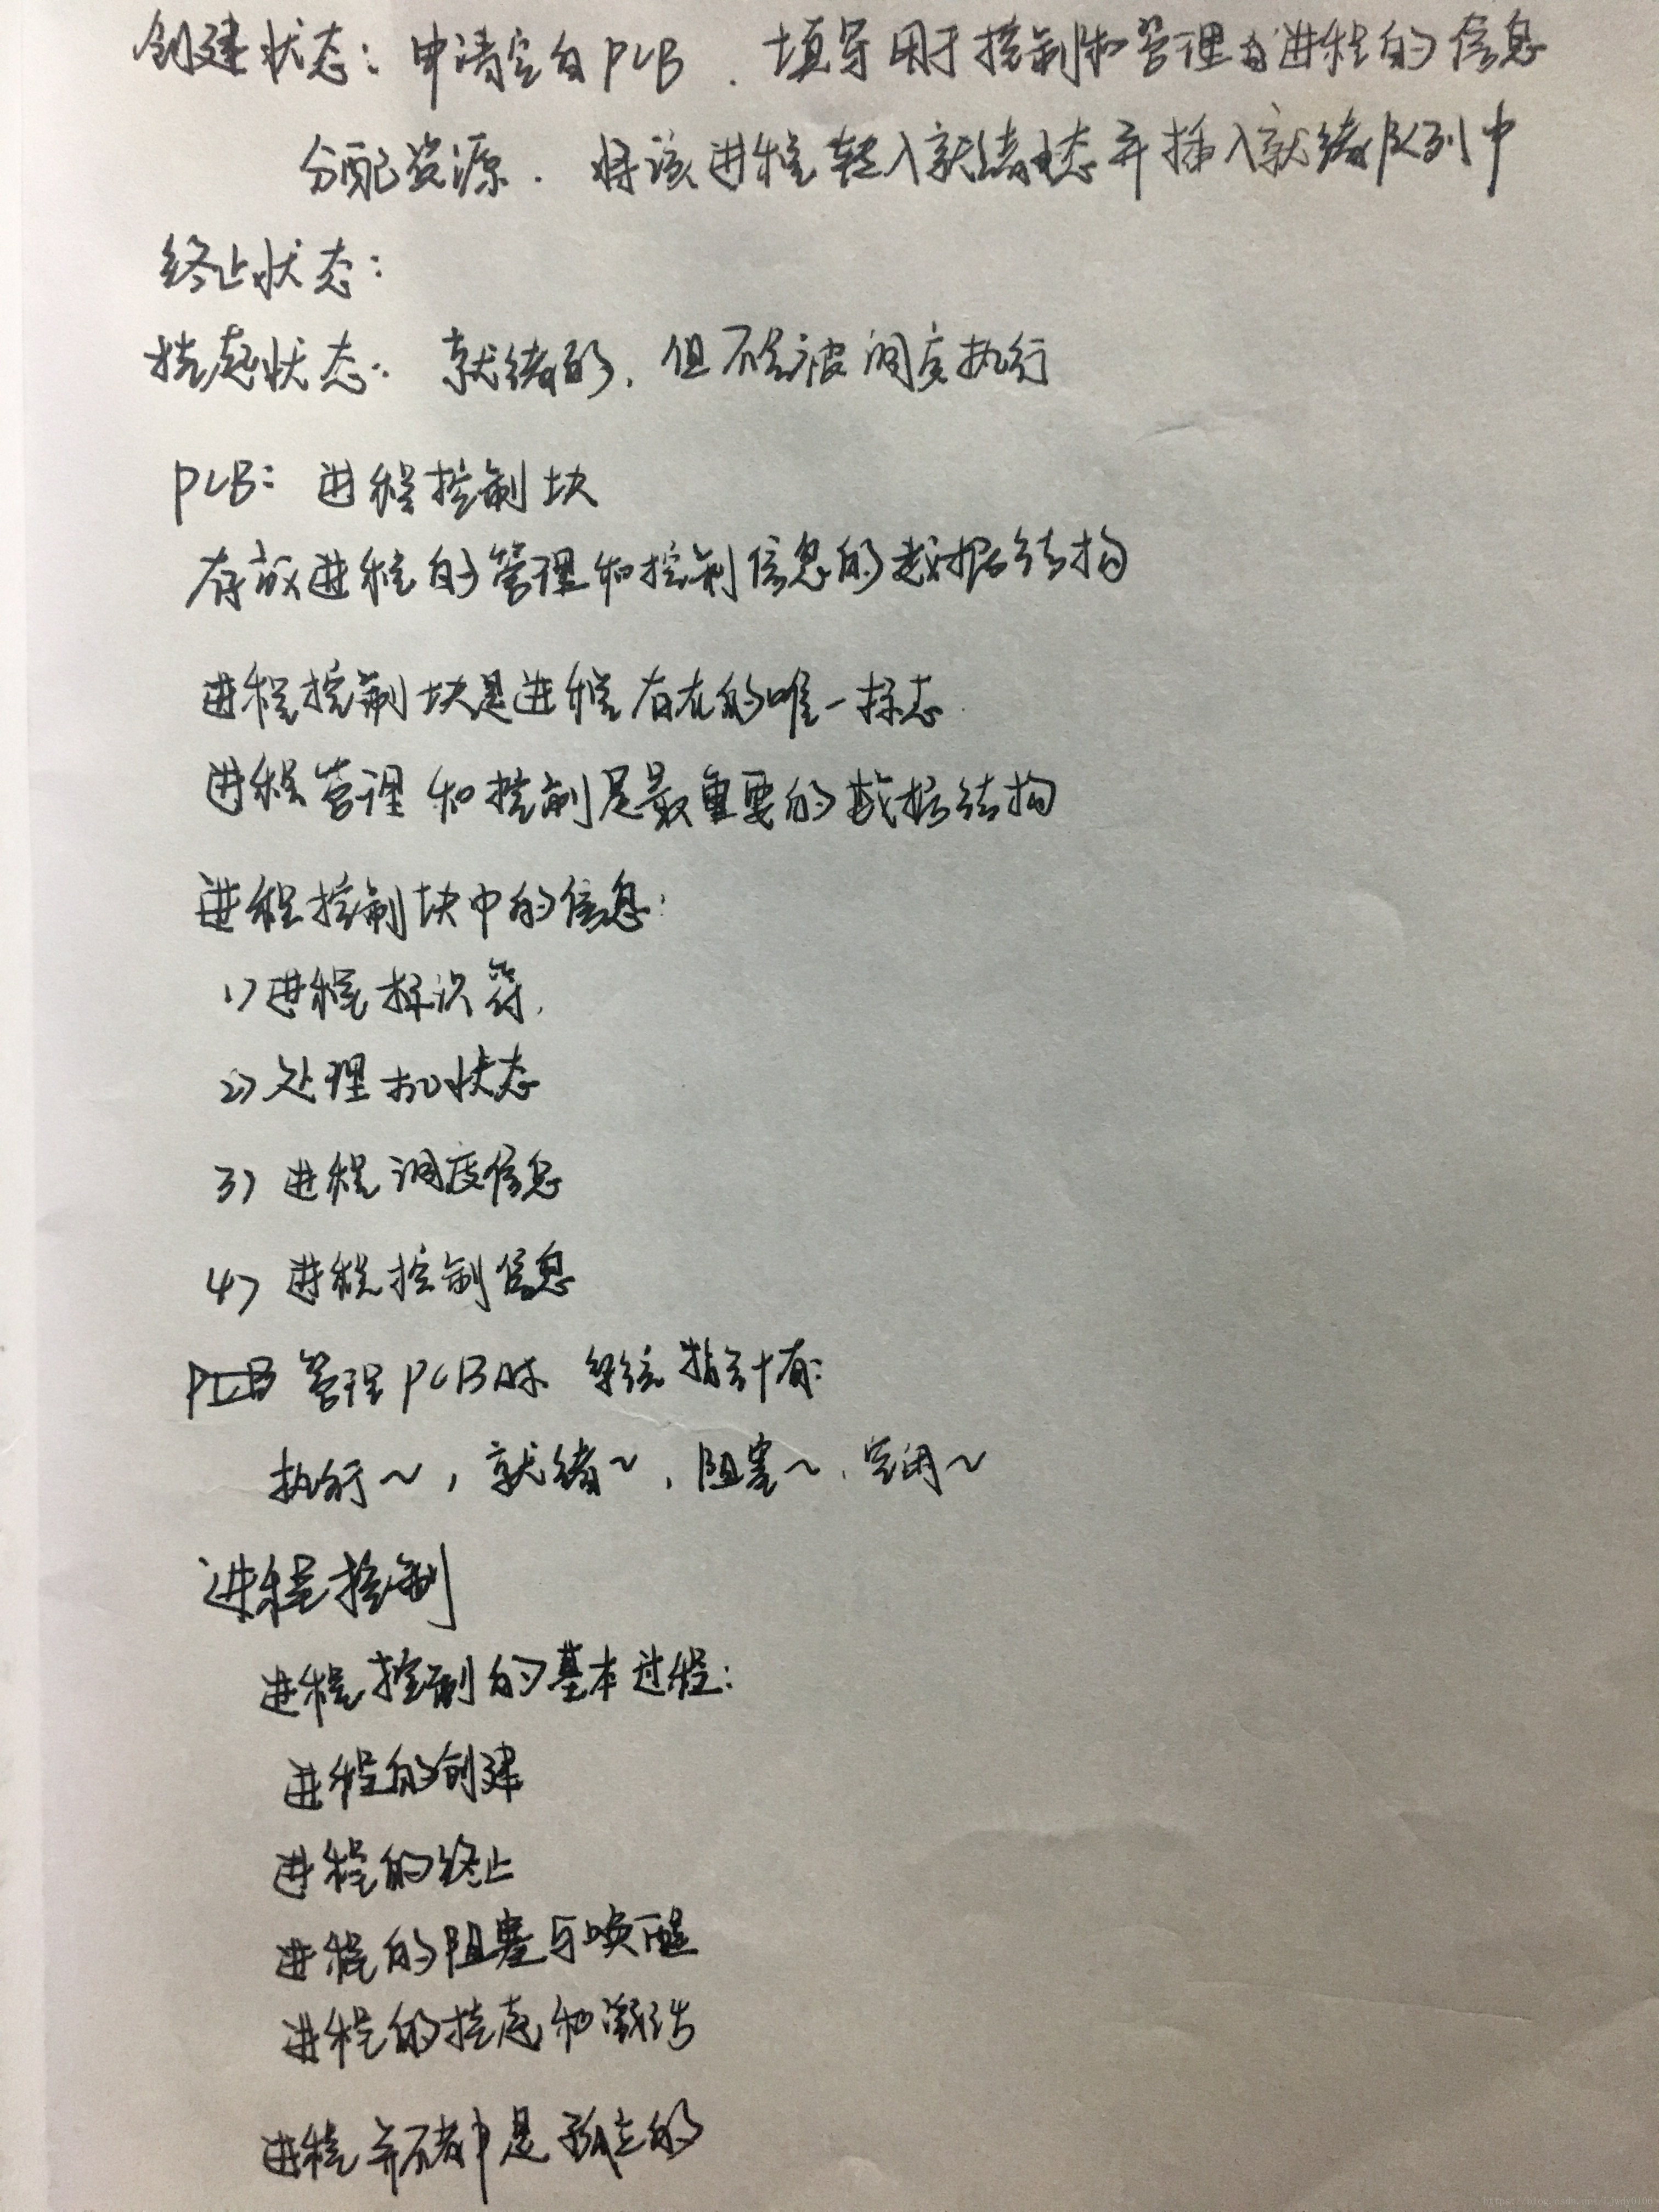 创建状态: 申请空白PCB . 填写用于控制和管理的进程的信息
分配资源. 将该进程转入就绪状态并插入就绪队列中
终止状态:
挂起状态: 就绪的, 但不能被调度执行
PCB: 进程控制块
存放进程的管理和控制信息的数据结构
进程控制块是进程存在的唯一标志.
进程管理和控制是最重要的数据结构
进程控制块中的信息:
1) 进程标识符.
2) 处理机状态
3) 进程调度信息
4) 进程控制信息
管理PCB时 系统指针有:
执行~, 就绪~, 阻塞~, 空闲~
进程控制
进程控制的基本过程:
进程的创建
进程的终止
进程的阻塞与唤醒
进程的挂起和激活
进程并不都是孤立的